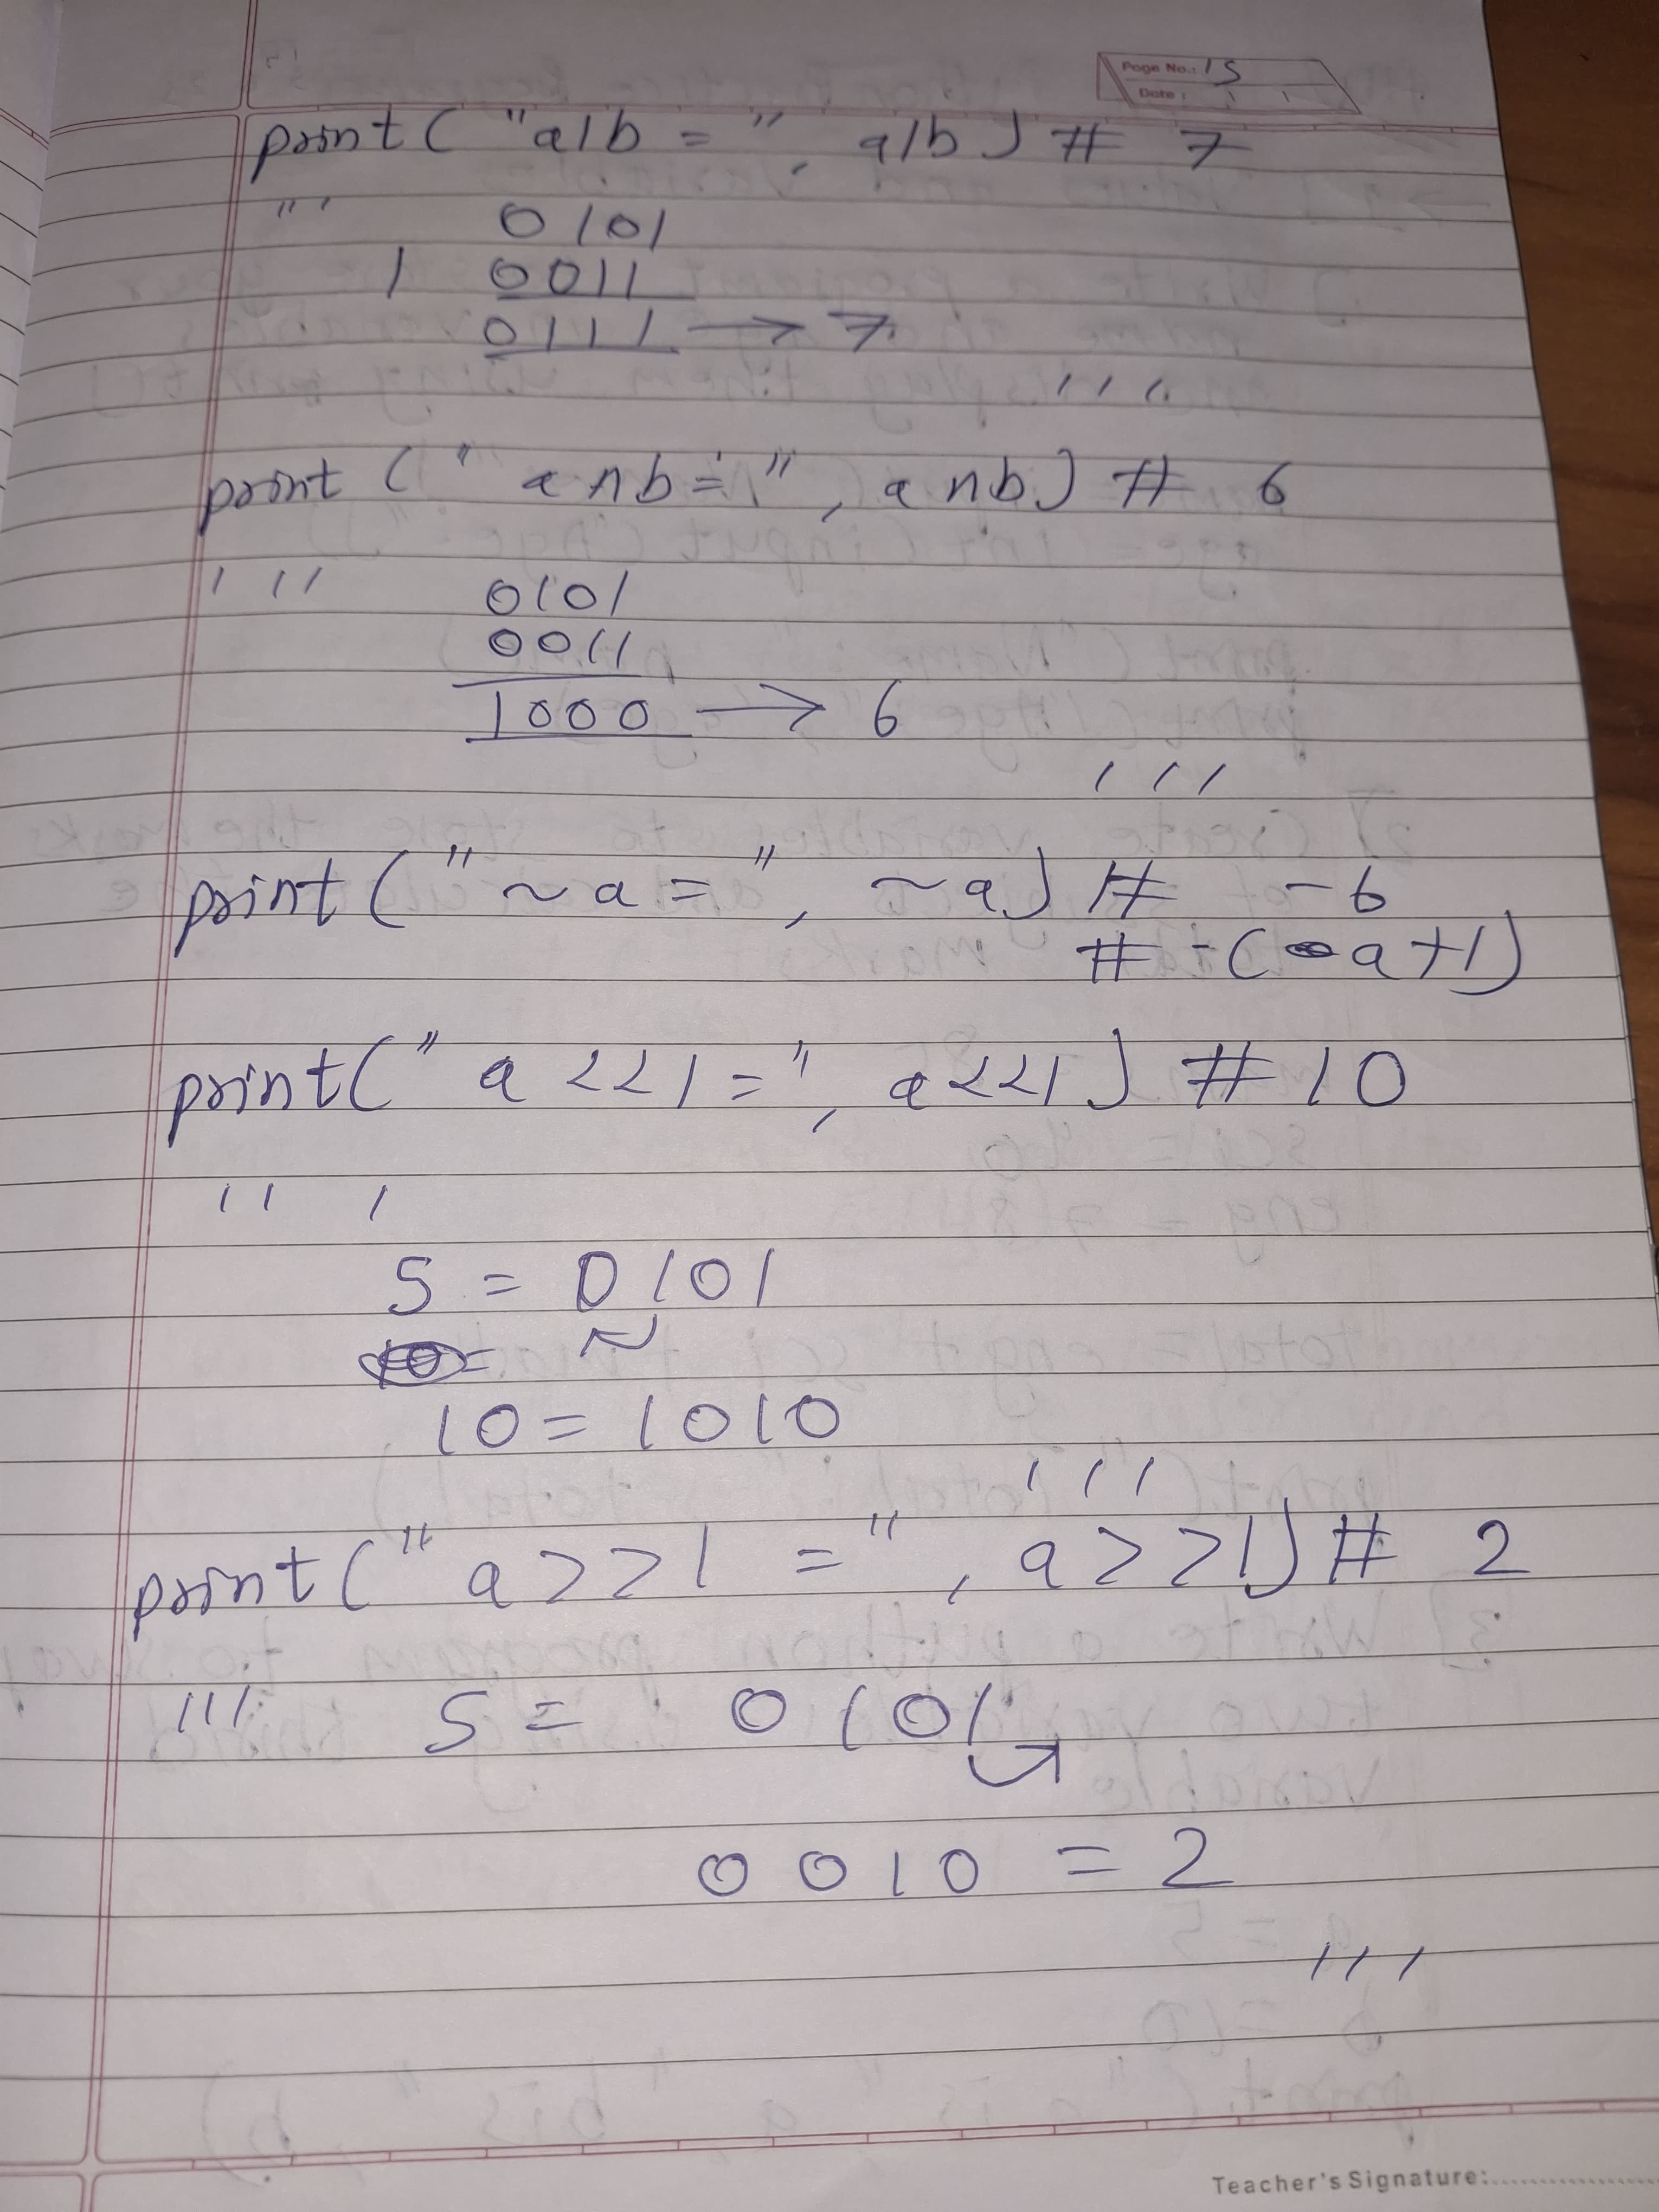 Page No.: 15
Date :
print ( "a|b = ", a|b ) # 7
''' 0101
| 0011
0111 → 7
'''
print ( " a ∧ b = ", a ∧ b ) # 6
''' 0101
0011
1000 → 6
'''
print ( " ~ a = ", ~ a ) # - 6
# - ( a + 1 )
print ( " a << 1 = ", a << 1 ) # 10
'''
5 = 0101
10 = 1010
'''
print ( " a >> 1 = ", a >> 1 ) # 2
''' 5 = 0101
0010 = 2
'''
Teacher's Signature: